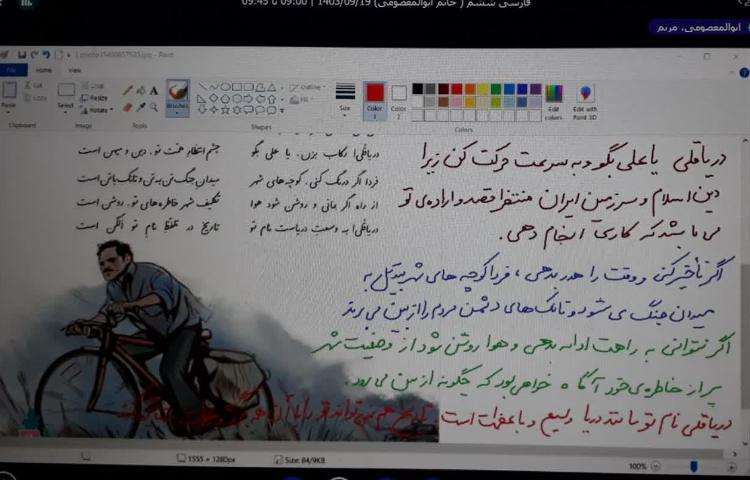 فارسی ششم ( خانم ابوالمعصومی) 1403/09/19 | 09:00 تا 09:45
ابوالمعصومی، مریم
File Home View
Paste Cut Copy Select Crop Resize Rotate Brushes Outline Fill Size Color 1 Color 2 Edit colors Edit with Paint 3D
Clipboard Image Tools Shapes Colors
دریاقلی! رکاب بزن، یا علی بگو
چشم انتظار همت تو، دین و میهن است
فردا اگر درنگ کنی، کوچه‌های شهر
میدان جنگ تن به تن و تانک با تن است
از راه اگر بمانی و روشن شود هوا
تکلیف شهر خاطره‌های تو، روشن است
دریاقلی! به وسعت دریاست نام تو
تاریخ در تلفظ نام تو الکن است
دریاقلی یا علی بگو و به سرعت حرکت کن زیرا
دین اسلام و سرزمین ایران منتظر قصد و اراده‌ی تو
می باشد که کاری انجام دهی.
اگر تأخیر کنی و وقت را هدر بدهی، فردا کوچه های شهر تبدیل به
میدان جنگ می شود و تانک های دشمن مردم را از بین می برند
اگر نتوانی به راهت ادامه بدهی و هوا روشن شود از وضعیت شهر
پر از خاطره‌ی خود آگاه خواهی بود که چگونه از بین می رود.
دریاقلی نام تو مانند دریا وسیع و با عظمت است. تاریخ هم نمی تواند تو را با آن همه
1555 × 1280px
Size: 84/9KB
100%